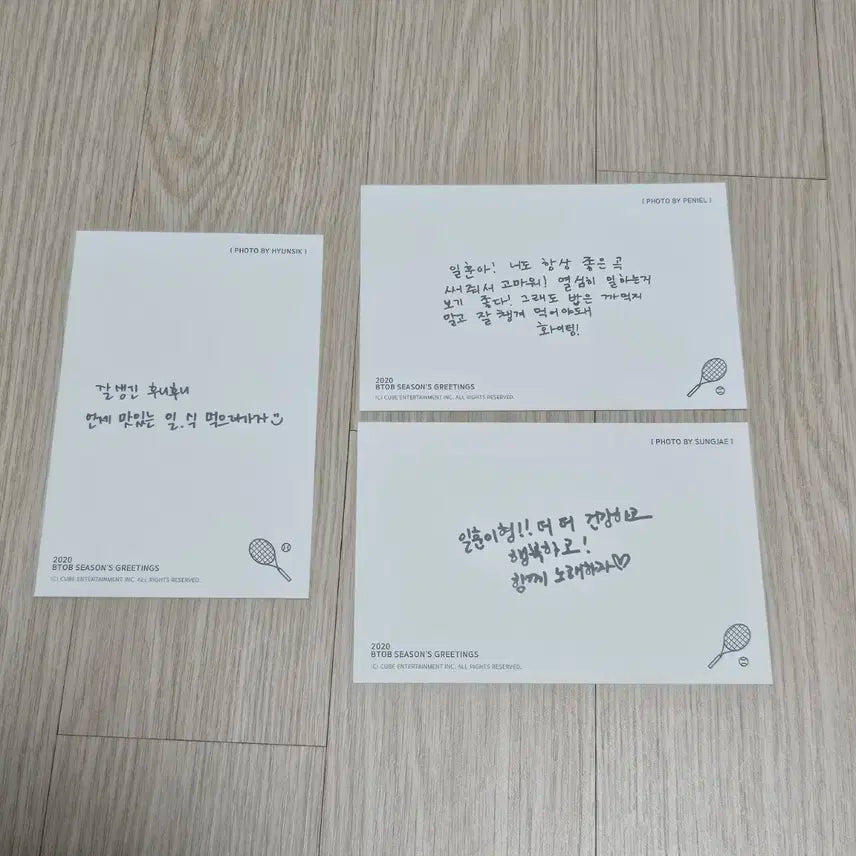 ( PHOTO BY HYUNSIK )
잘생긴 후니후니
언제 맛있는 일.식 먹으러가자
2020
BTOB SEASON'S GREETINGS
(C) CUBE ENTERTAINMENT INC. ALL RIGHTS RESERVED.
( PHOTO BY PENIEL )
일훈아! 너도 항상 좋은 곡
써줘서 고마워! 열심히 일하는거
보기 좋다! 그래도 밥은 까먹지
말고 잘 챙겨 먹어야돼
화이팅!
2020
BTOB SEASON'S GREETINGS
(C) CUBE ENTERTAINMENT INC. ALL RIGHTS RESERVED.
( PHOTO BY SUNGJAE )
일훈이형!! 더 더 건강하고
행복하고!
함께 노래하자♡
2020
BTOB SEASON'S GREETINGS
(C) CUBE ENTERTAINMENT INC. ALL RIGHTS RESERVED.